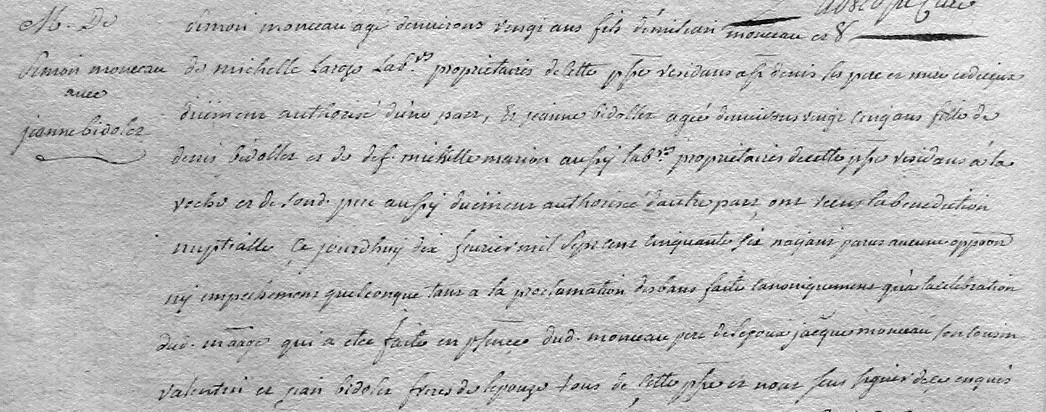 M. De
Simon monceau
avec
jeanne bidolet
Simon monceau agé denvirons vingt ans fils démilian monceau et &
de michelle Large Lab.rs proprietaires de cette psse residans a st denis les pere et mere cedeux
duëment authorisé d'une part, Et jeanne bidollet agée denvirons vingt cinq ans fille de
denis bidollet et de def. michelle marion aussy lab.rs proprietaires de cette psse residans á la
roche et de sond. pere aussy duëment authorisée d'autre part, ont receus la benediction
nuptialle Ce jourdhuy dix fevrier mil sept cent cinquante six nayant parus aucune opposon
ny empechement quelconque tant a la proclamation des bans faite canoniquement qu'a la celebration
dud. mariage qui a eté faite en psence dud. monceau pere de l'epoux jacque monceau son cousin
valentin et jean bidolet freres de l'epouze tous de cette psse et nont sceus signer de ce enquis